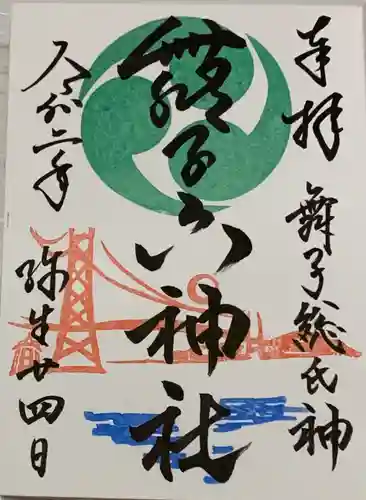 奉拝
舞子総氏神
舞子六神社
令和二年
弥生廿四日